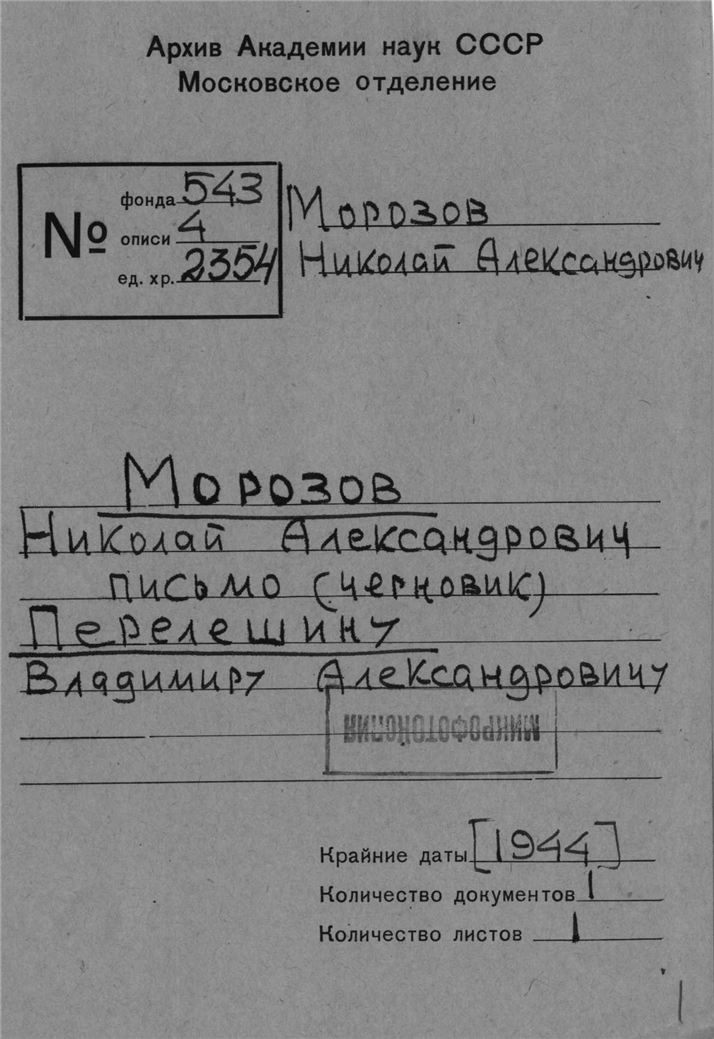 Архив Академии наук СССР
Московское отделение
№
фонда 543
описи 4
ед. хр. 2354
Морозов
Николай Александрович
Морозов
Николай Александрович
письмо (черновик)
Перелешину
Владимиру Александровичу
МИКРОФОТОКОПИЯ
Крайние даты [1944]
Количество документов 1
Количество листов 1
1